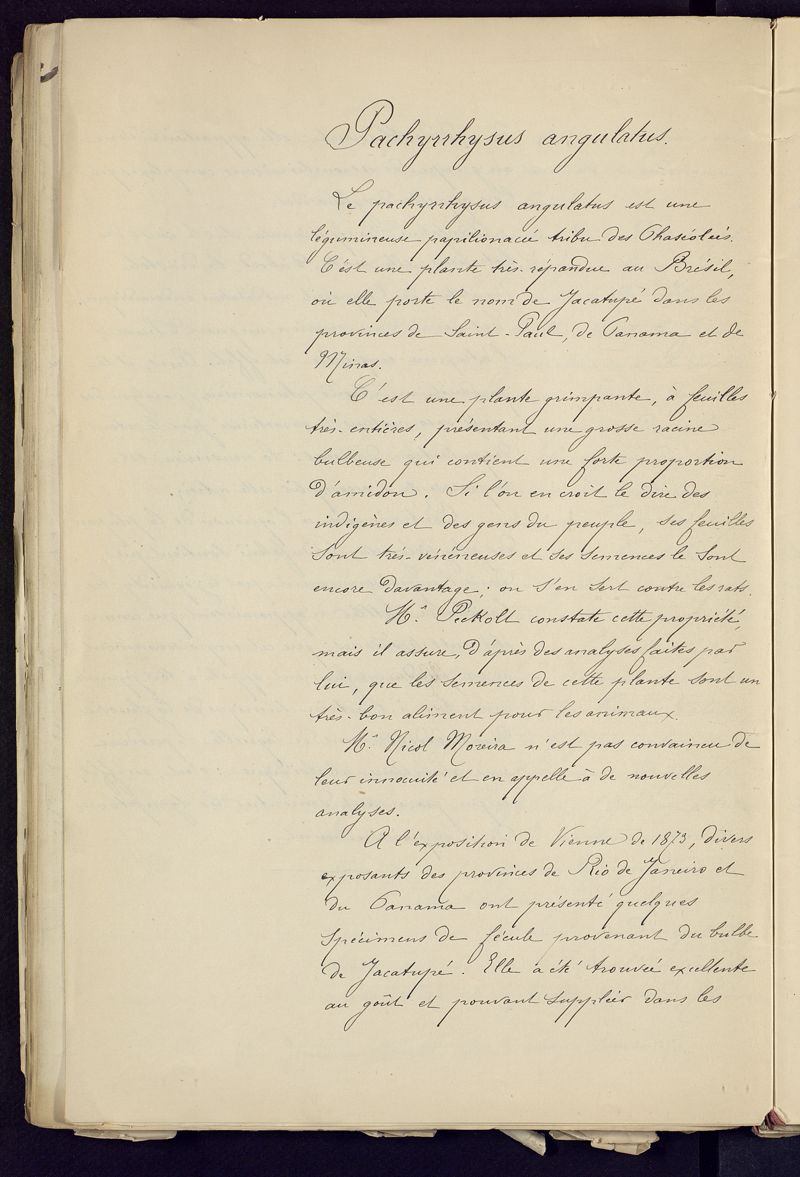 Pachyrrhysus angulatus.
Le pachyrrhysus angulatus est une
légumineuse papilionacée tribu des Phaséolées.
C'est une plante très-répandue au Brésil,
où elle porte le nom de Jacatupé dans les
provinces de Saint-Paul, de Panama et de
Minas.
C'est une plante grimpante, à feuilles
très-entières, présentant une grosse racine
bulbeuse qui contient une forte proportion
d'amidon. Si l'on en croit le dire des
indigènes et des gens du peuple, ses feuilles
sont très-vénéneuses et ses semences le sont
encore davantage; on s'en sert contre les rats.
Mr. Peckolt constate cette propriété,
mais il assure, d'après des analyses faites par
lui, que les semences de cette plante sont un
très-bon aliment pour les animaux.
Mr. Nicol Moreira n'est pas convaincu de
leur innocuité et en appelle à de nouvelles
analyses.
A l'exposition de Vienne de 1873, divers
exposants des provinces de Rio de Janeiro et
du Panama ont présenté quelques
spécimens de fécule provenant du bulbe
de Jacatupé. Elle a été trouvée excellente
au goût et pouvant suppléer dans les